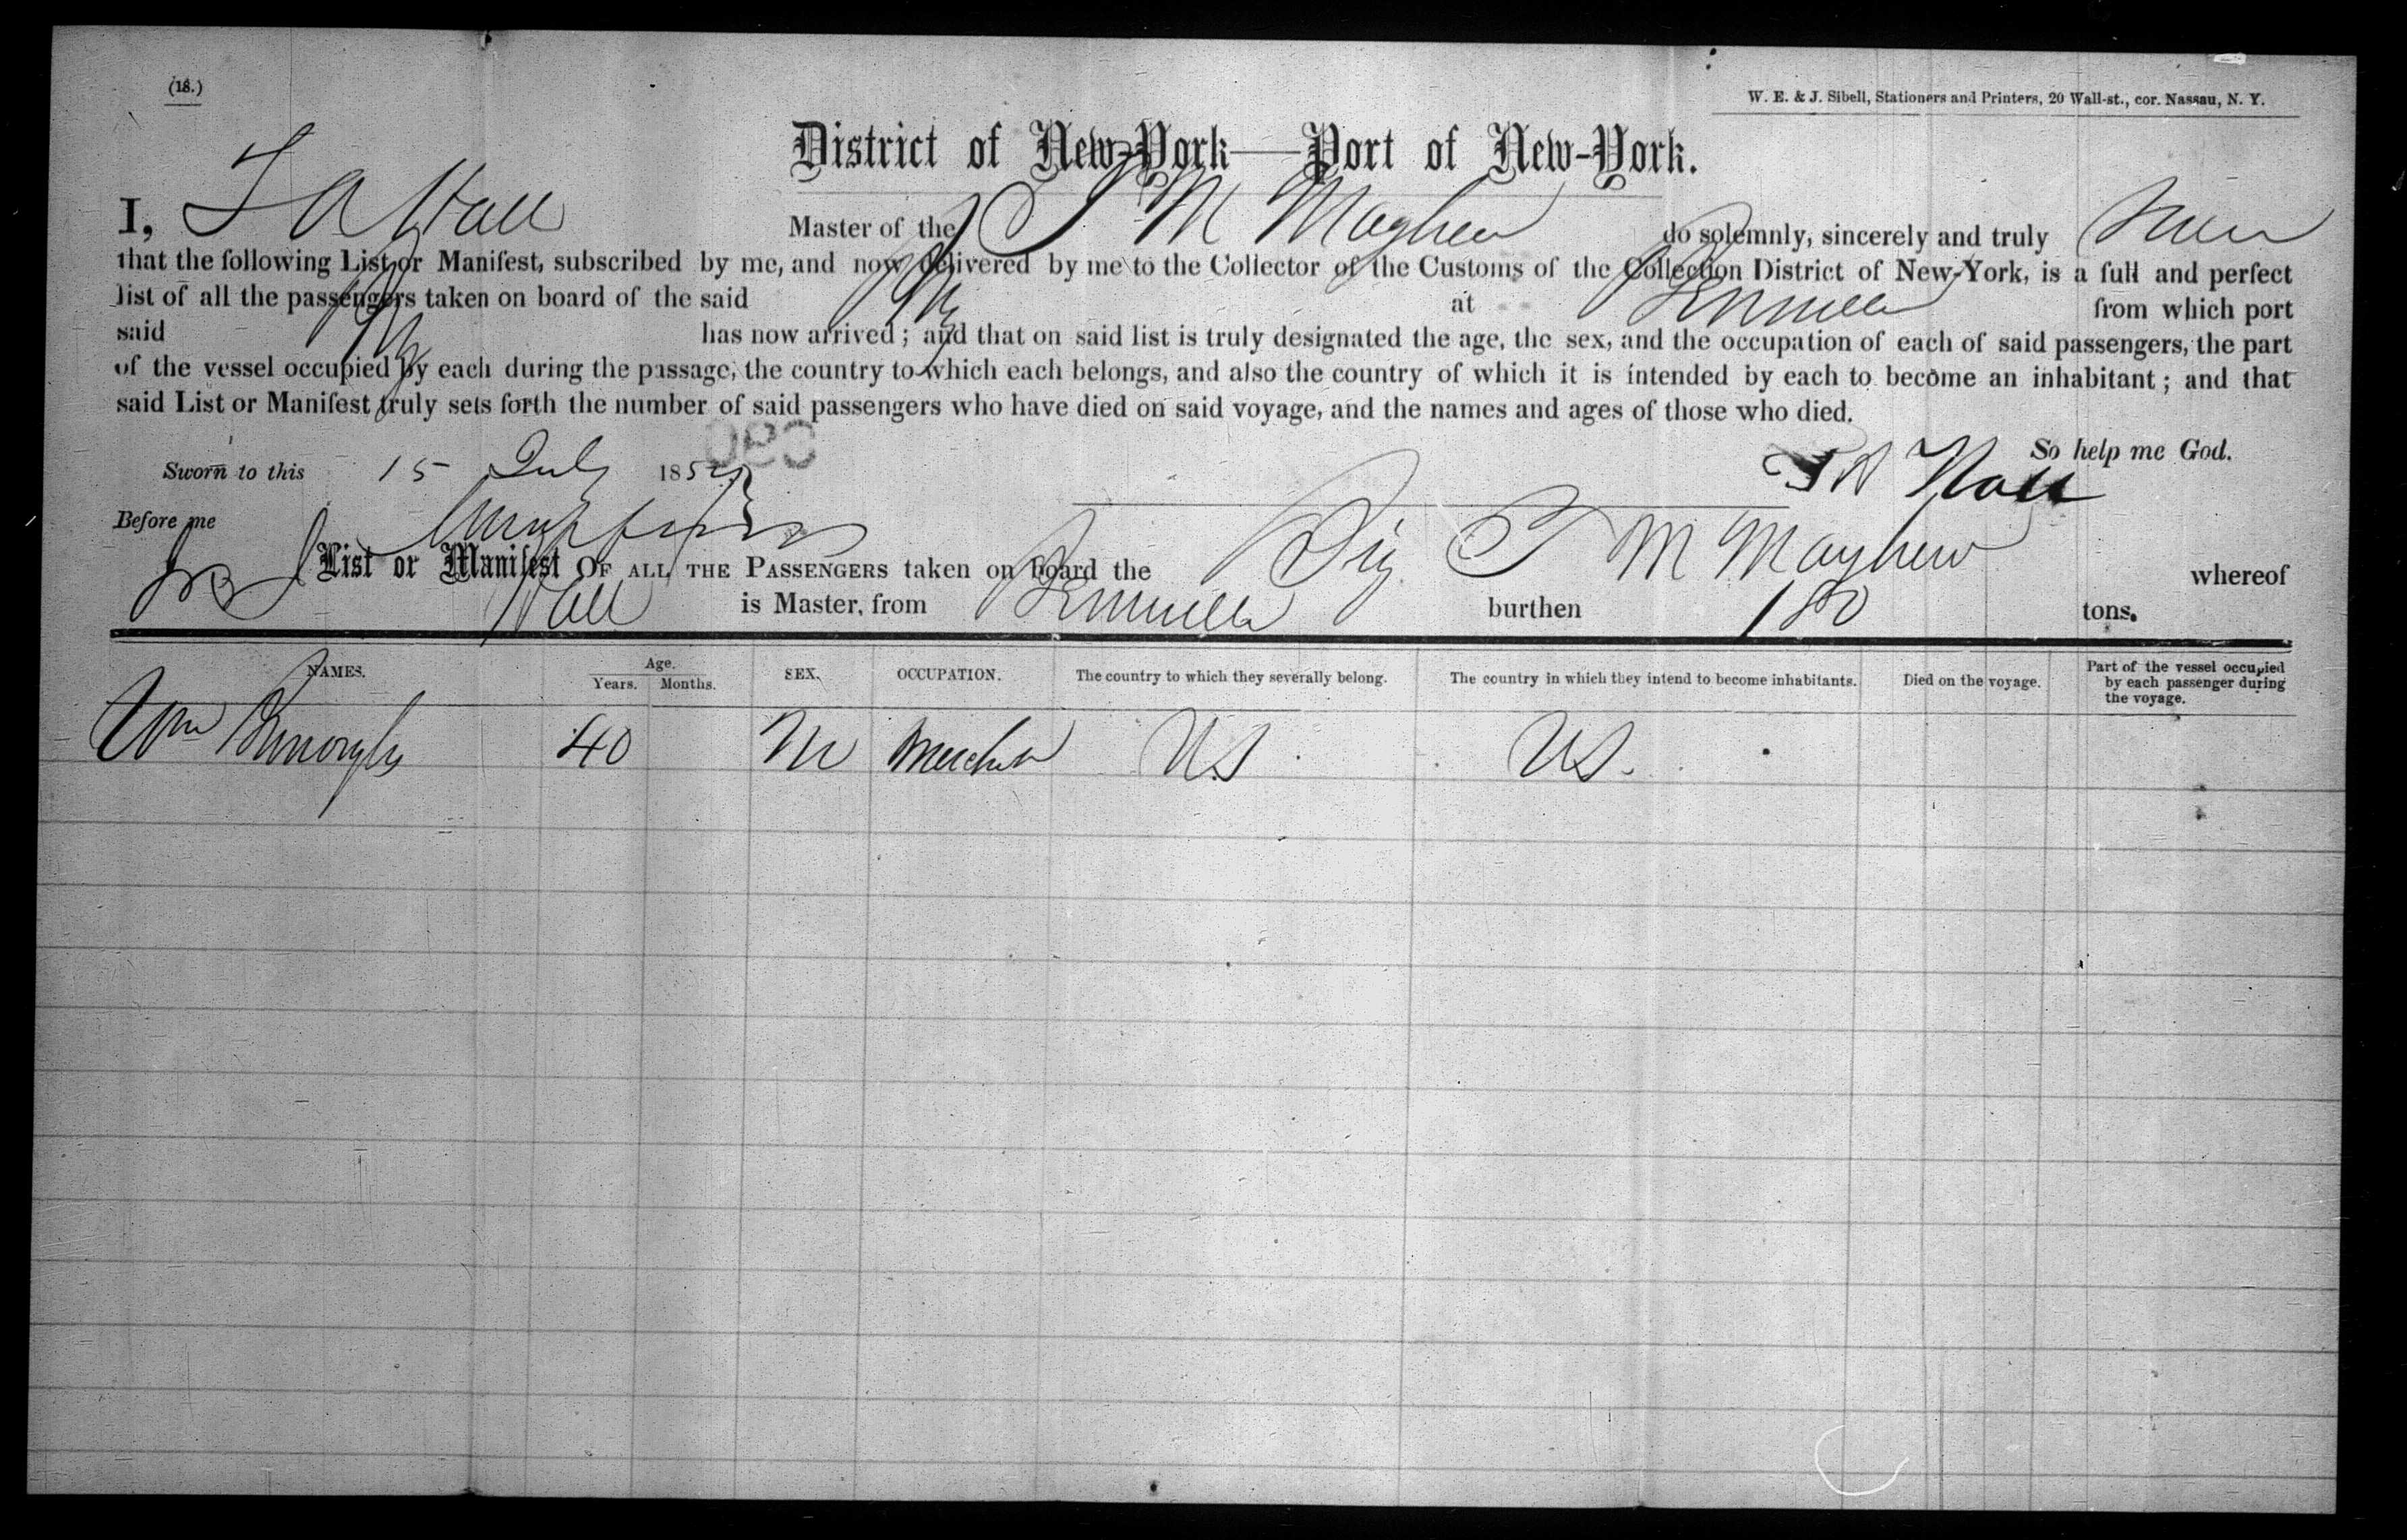 (18.)
W. E. & J. Sibell, Stationers and Printers, 20 Wall-st., cor. Nassau, N. Y.
District of New-York—Port of New-York.
I, Hall Master of the T M Mayhew do solemnly, sincerely and truly
that the following List or Manifest, subscribed by me, and now delivered by me to the Collector of the Customs of the Collection District of New-York, is a full and perfect
list of all the passengers taken on board of the said Brig at from which port
said Brig has now arrived; and that on said list is truly designated the age, the sex, and the occupation of each of said passengers, the part
of the vessel occupied by each during the passage, the country to which each belongs, and also the country of which it is intended by each to become an inhabitant; and that
said List or Manifest truly sets forth the number of said passengers who have died on said voyage, and the names and ages of those who died.
So help me God.
Sworn to this 15 July 185
Hall
Before me
List or Manifest OF ALL THE PASSENGERS taken on board the Brig T M Mayhew whereof
Hall is Master, from burthen 180 tons.
NAMES. Age. Years. Months. SEX. OCCUPATION. The country to which they severally belong. The country in which they intend to become inhabitants. Died on the voyage. Part of the vessel occupied by each passenger during the voyage.
Wm Burroughs 40 M US US.